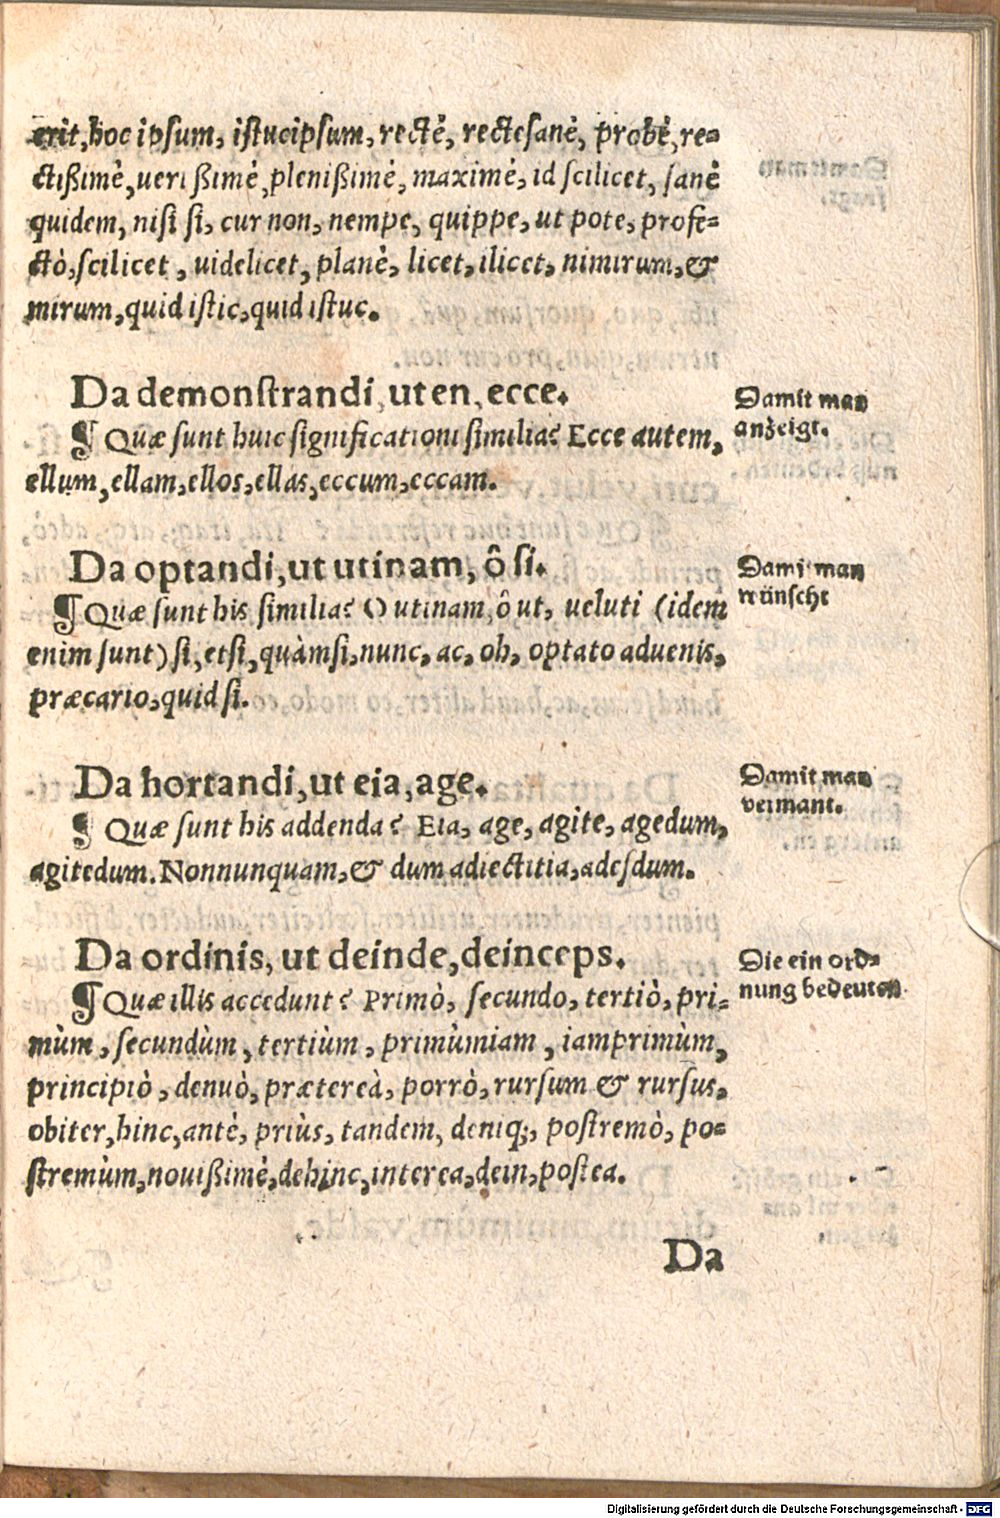 erit, hoc ipsum, istucipsum, rectè, rectesanè, probè, re-
ctißimè, ueri ßimè, plenißimè, maximè, id scilicet, sanè
quidem, nisi si, cur non, nempe, quippe, ut pote, profe-
ctò, scilicet, uidelicet, planè, licet, ilicet, nimirum, &
mirum, quid istic, quid istuc.
Da demonstrandi, ut en, ecce.
Damit man
anzeigt.
¶ Quæ sunt huic significationi similia? Ecce autem,
ellum, ellam, ellos, ellas, eccum, eccam.
Da optandi, ut utinam, ô si.
Damit man
wünscht
¶ Quæ sunt his similia? O utinam, ô ut, ueluti (idem
enim sunt) si, etsi, quàmsi, nunc, ac, oh, optato aduenis,
præcario, quid si.
Da hortandi, ut eia, age.
Damit man
vermant.
¶ Quæ sunt his addenda? Eia, age, agite, agedum,
agitedum. Nonnunquam, & dum adiectitia, adesdum.
Da ordinis, ut deinde, deinceps.
Die ein ord-
nung bedeuten.
¶ Quæ illis accedunt? Primò, secundo, tertiò, pri-
mùm, secundùm, tertiùm, primùmiam, iamprimùm,
principiò, denuò, prætereà, porrò, rursum & rursus,
obiter, hinc, antè, priùs, tandem, deniq;, postremò, po-
stremùm, nouißimè, dehinc, interea, dein, postea.
Da
Digitalisierung gefördert durch die Deutsche Forschungsgemeinschaft - DFG